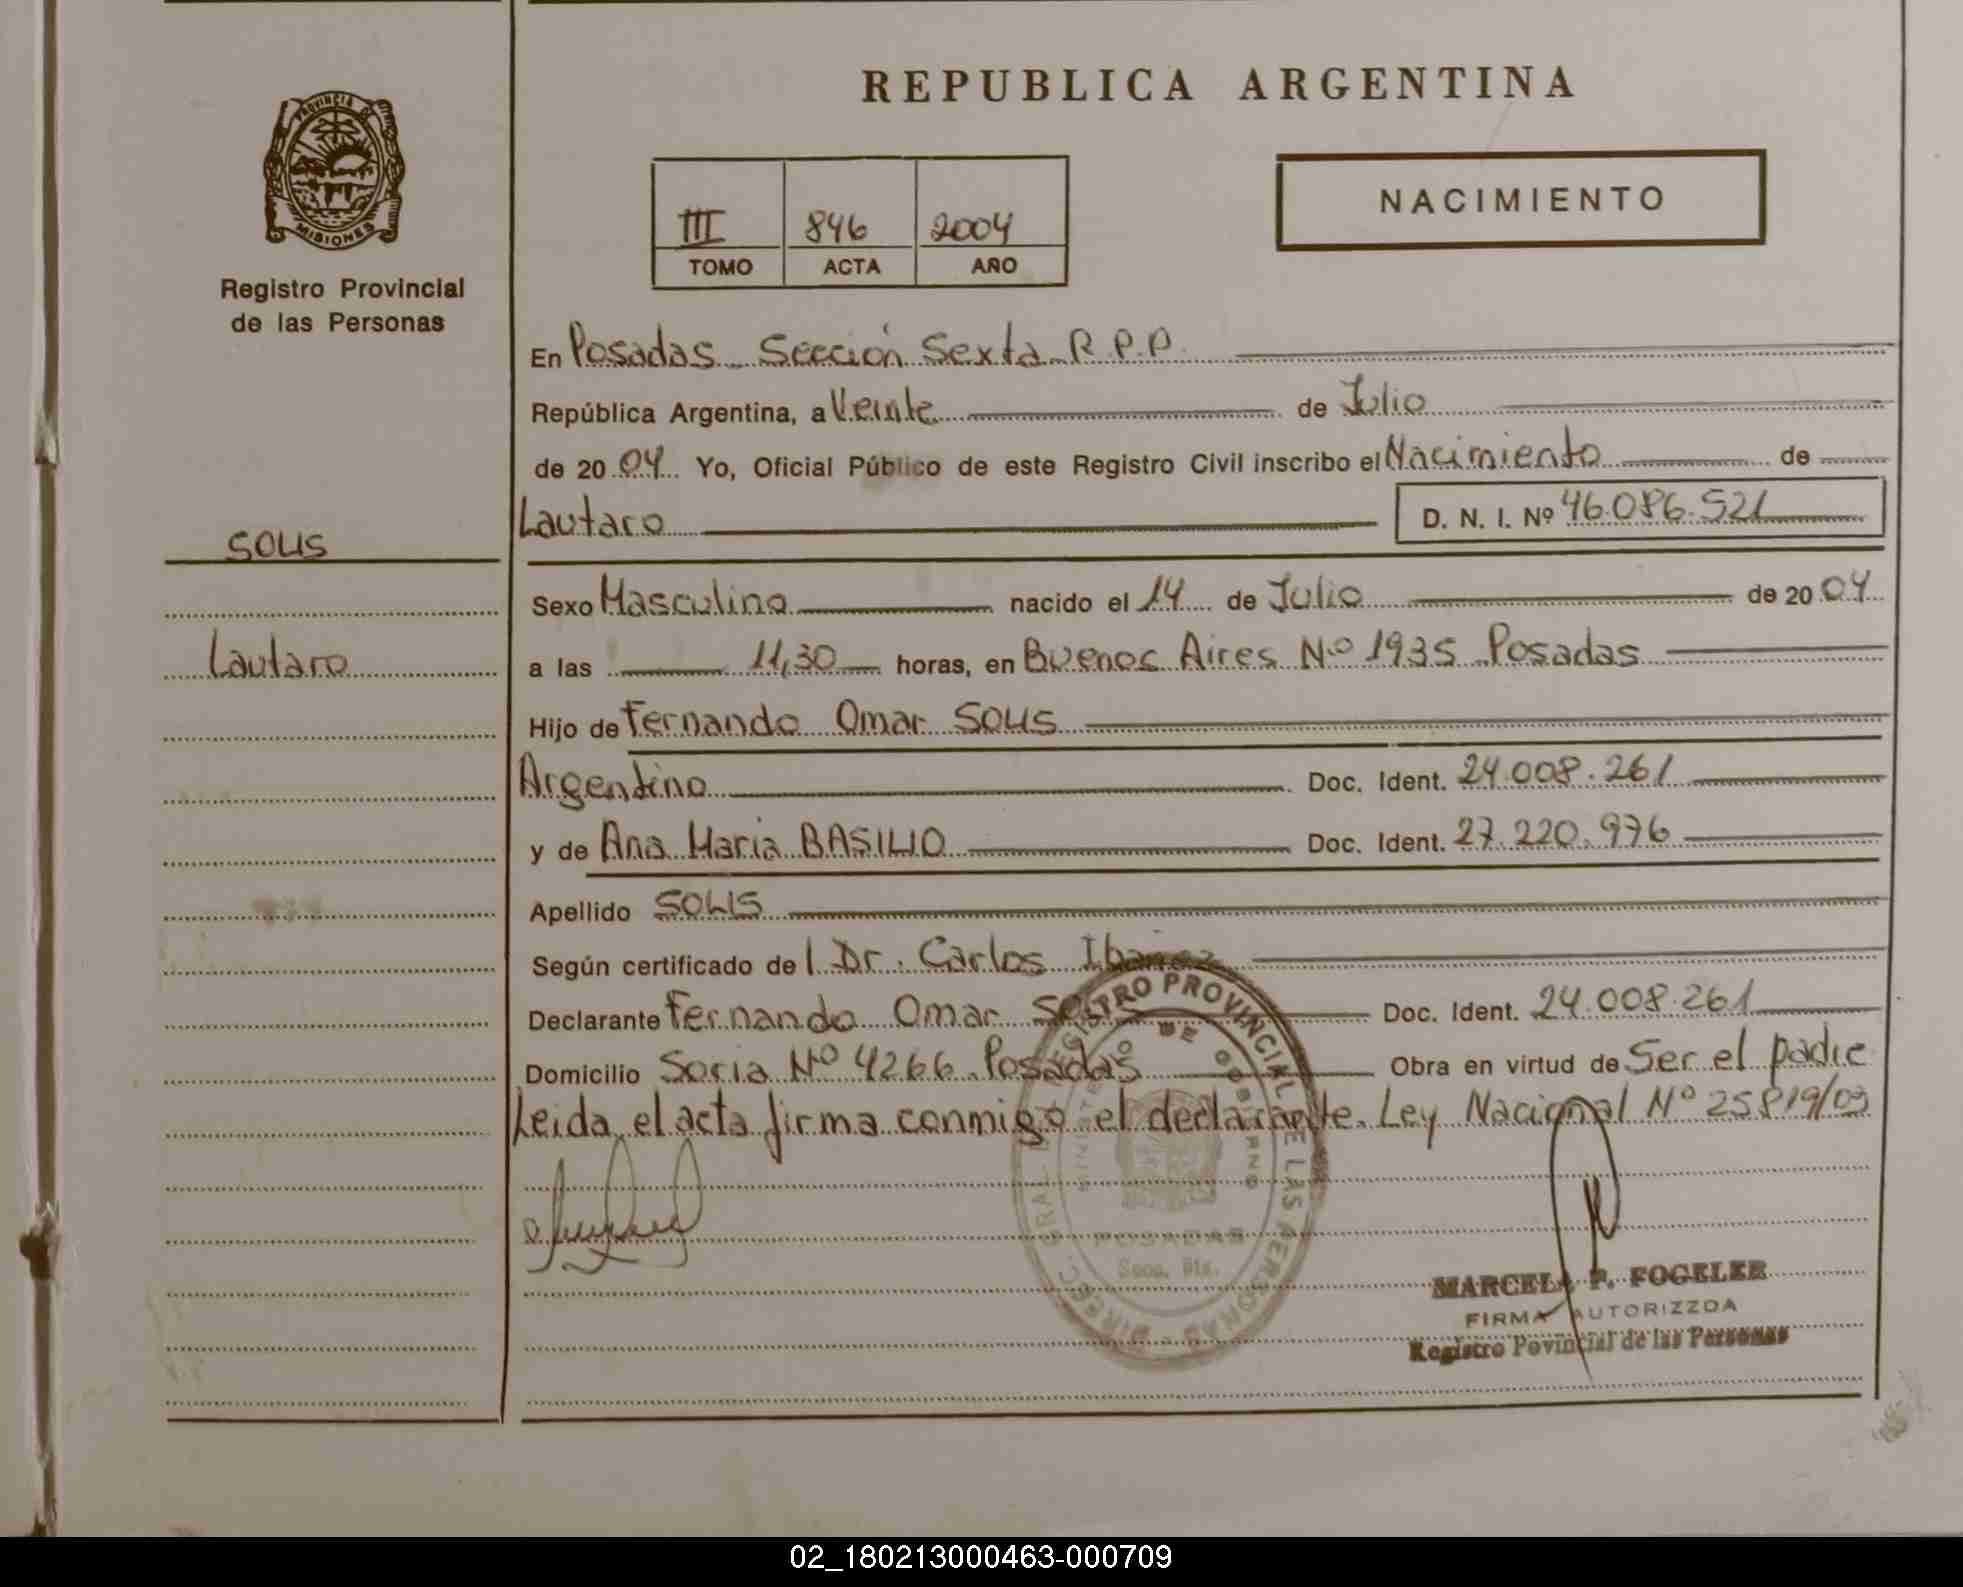 PROVINCIA DE
MISIONES
Registro Provincial
de las Personas
SOLIS
Lautaro
REPUBLICA ARGENTINA
NACIMIENTO
III 846 2004
TOMO ACTA AÑO
En Posadas Sección Sexta R.P.P.
República Argentina, a Veinte de Julio
de 20 04 Yo, Oficial Público de este Registro Civil inscribo el Nacimiento de
Lautaro D. N. I. Nº 46.086.521
Sexo Masculino nacido el 14 de Julio de 20 04
a las 11,30 horas, en Buenos Aires Nº 1935 Posadas
Hijo de Fernando Omar SOLIS
Argentino Doc. Ident. 24.008.261
y de Ana Maria BASILIO Doc. Ident. 27.220.976
Apellido SOLIS
Según certificado de l Dr. Carlos Ibañez
Declarante Fernando Omar Solis Doc. Ident. 24.008.261
Domicilio Soria Nº 4266 Posadas Obra en virtud de Ser el padre
Leida el acta firma conmigo el declarante. Ley Nacional Nº 25819/03
DIREC. GRAL. REGISTRO PROVINCIAL DE LAS PERSONAS
MINISTERIO DE GOBIERNO
POSADAS
MARCELA P. FOGELER
FIRMA AUTORIZZDA
Registro Povincial de las Personas
02_180213000463-000709